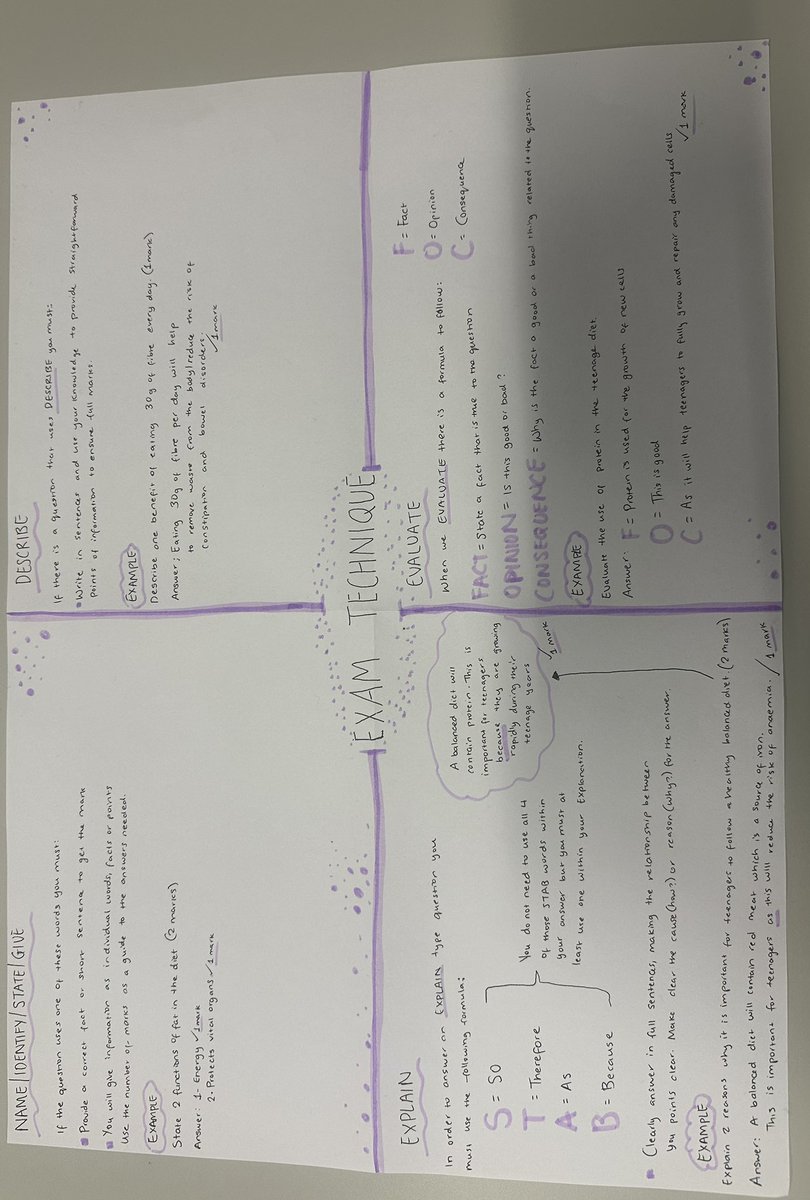 NAME/IDENTIFY/STATE/GIVE
If the question uses one of these words you must:
Provide a correct fact or short sentence to get the mark
You will give information as individual words, facts or points
Use the number of marks as a guide to the answers needed.
EXAMPLE
State 2 functions of fat in the diet (2 marks)
Answer: 1- Energy ✓1 mark
2- Protects vital organs ✓1 mark
DESCRIBE
If there is a question that uses DESCRIBE you must:
Write in sentences and use your knowledge to provide straightforward
points of information to ensure full marks.
EXAMPLE
Describe one benefit of eating 30g of fibre every day. (1 mark)
Answer: Eating 30g of fibre per day will help
to remove waste from the body/reduce the risk of
constipation and bowel disorders.
✓1 mark
EXAM TECHNIQUE
EXPLAIN
In order to answer an EXPLAIN type question you
must use the following formula:
S = SO
T = Therefore
A = As
B = Because
You do not need to use all 4
of those STAB words within
your answer but you must at
least use one within your Explanation.
Clearly answer in full sentences, making the relationship between
you points clear. Make clear the cause (how?) or reason (why?) for the answer.
EXAMPLE
Explain 2 reasons why it is important for teenagers to follow a healthy balanced diet (2 marks)
Answer: A balanced diet will contain red meat which is a source of iron.
This is important for teenagers as this will reduce the risk of anaemia. ✓1 mark
A balanced diet will
contain protein. This is
important for teenagers
because they are growing
rapidly during their
teenage years
✓1 mark
EVALUATE
When we EVALUATE there is a formula to follow:
F = Fact
O = Opinion
C = Consequence
FACT = State a fact that is true to the question
OPINION = Is this good or bad?
CONSEQUENCE = Why is the fact a good or a bad thing related to the question.
EXAMPLE
Evaluate the use of protein in the teenage diet.
Answer: F = Protein is used for the growth of new cells
O = This is good
C = As it will help teenagers to fully grow and repair any damaged cells
✓1 mark